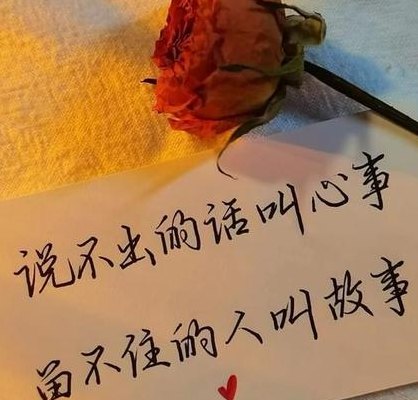 说不出的话叫心事
留不住的人叫故事